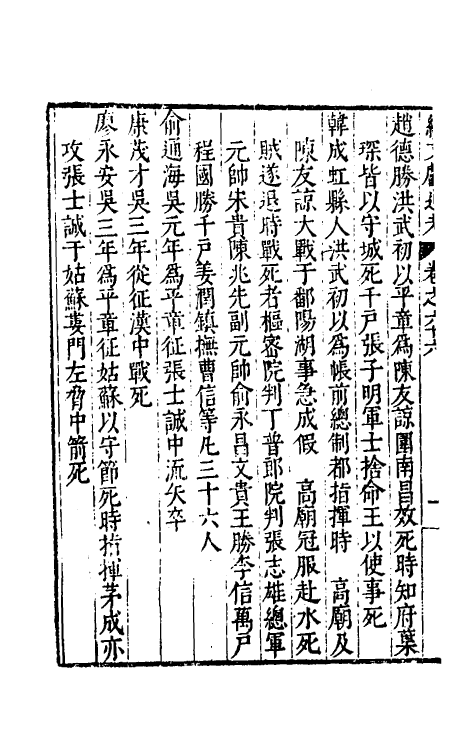 續文獻通考 卷之六十六
趙德勝洪武初以平章爲陳友諒圍南昌效死時知府葉
琛皆以守城死千戶張子明軍士捨命王以使事死
韓成虹縣人洪武初以爲帳前總制都指揮時　高廟及
陳友諒大戰于鄱陽湖事急成假　高廟冠服赴水死
賊遂退時戰死者樞密院判丁普郎院判張志雄總軍
元帥宋貴陳兆先副元帥俞永昌文貴王勝李信萬戶
程國勝千戶姜潤鎮撫曹信等凡三十六人
俞通海吳元年爲平章征張士誠中流矢卒
康茂才吳三年從征漢中戰死
廖永安吳三年爲平章征姑蘇以守節死時指揮茅成亦
攻張士誠于姑蘇婁門左脅中箭死